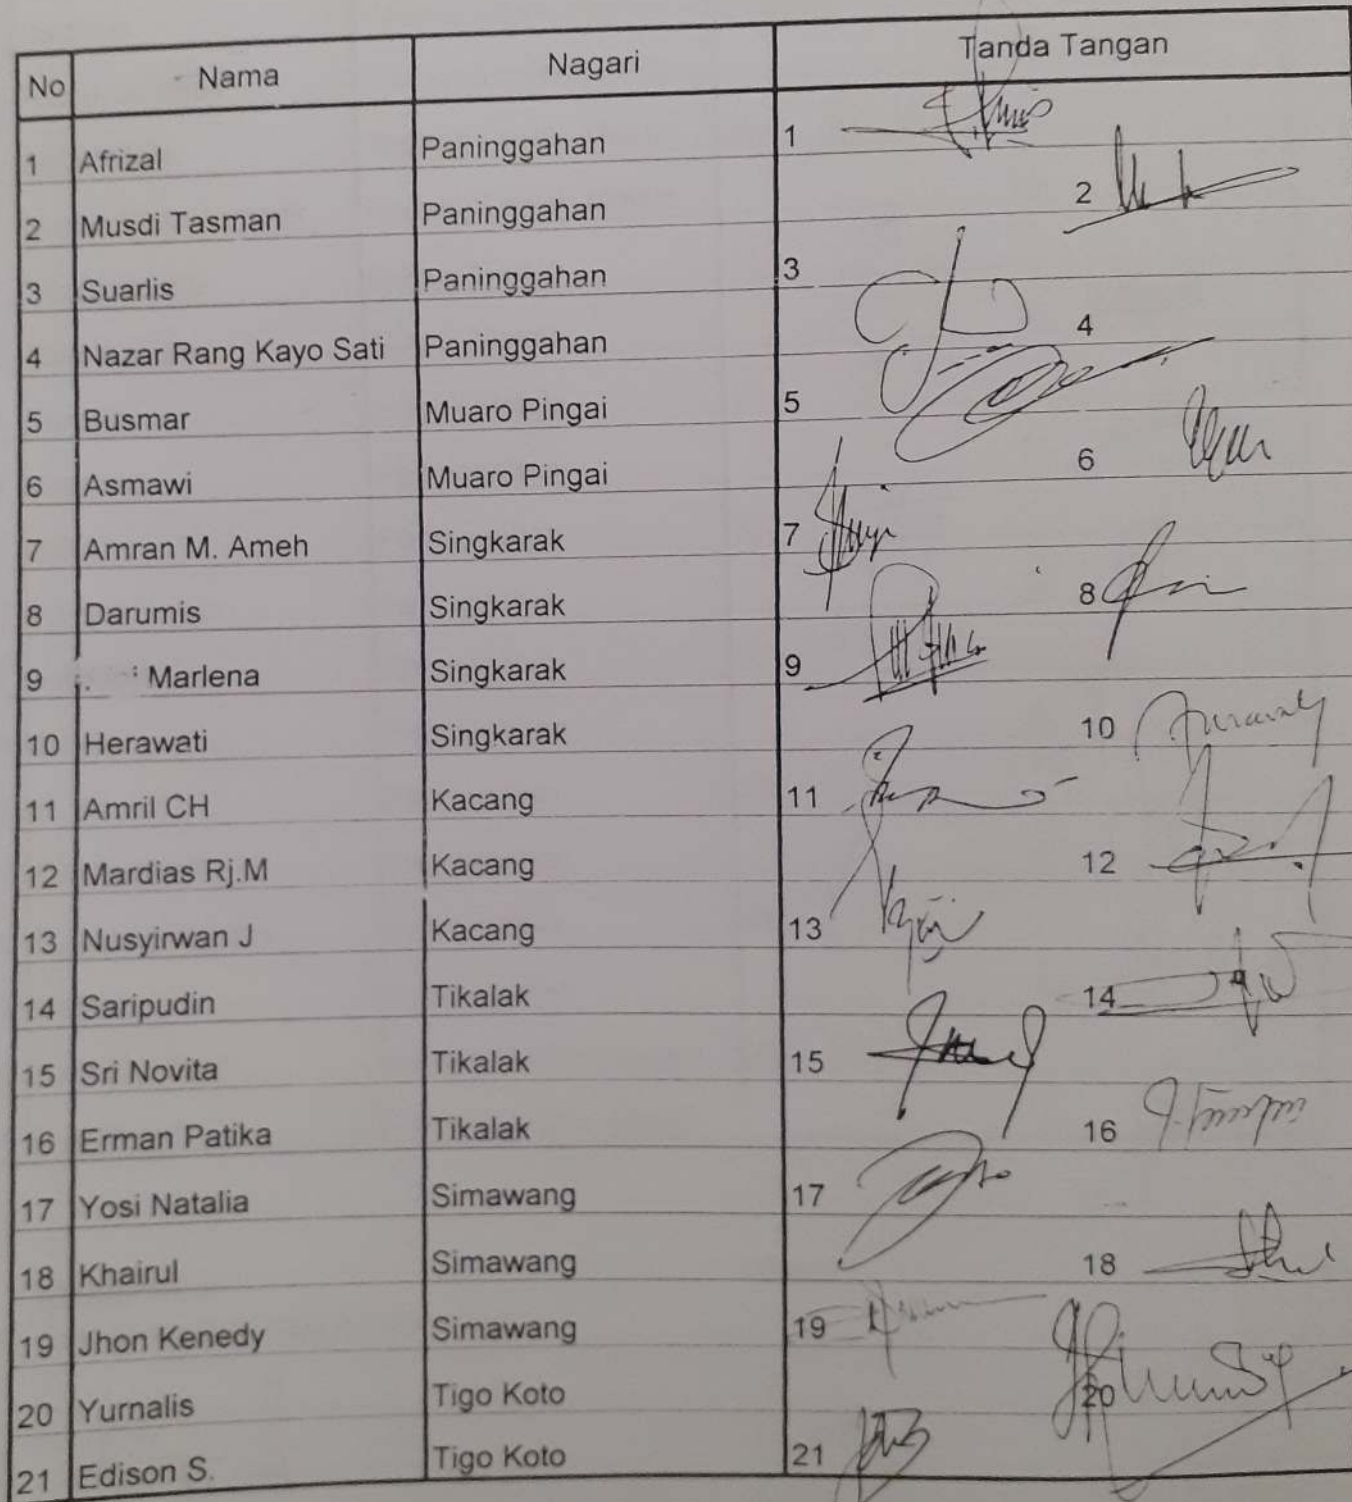 No Nama Nagari Tanda Tangan
1 Afrizal Paninggahan 1
2 Musdi Tasman Paninggahan 2
3 Suarlis Paninggahan 3
4 Nazar Rang Kayo Sati Paninggahan 4
5 Busmar Muaro Pingai 5
6 Asmawi Muaro Pingai 6
7 Amran M. Ameh Singkarak 7
8 Darumis Singkarak 8
9 Marlena Singkarak 9
10 Herawati Singkarak 10
11 Amril CH Kacang 11
12 Mardias Rj.M Kacang 12
13 Nusyirwan J Kacang 13
14 Saripudin Tikalak 14
15 Sri Novita Tikalak 15
16 Erman Patika Tikalak 16
17 Yosi Natalia Simawang 17
18 Khairul Simawang 18
19 Jhon Kenedy Simawang 19
20 Yurnalis Tigo Koto 20
21 Edison S. Tigo Koto 21